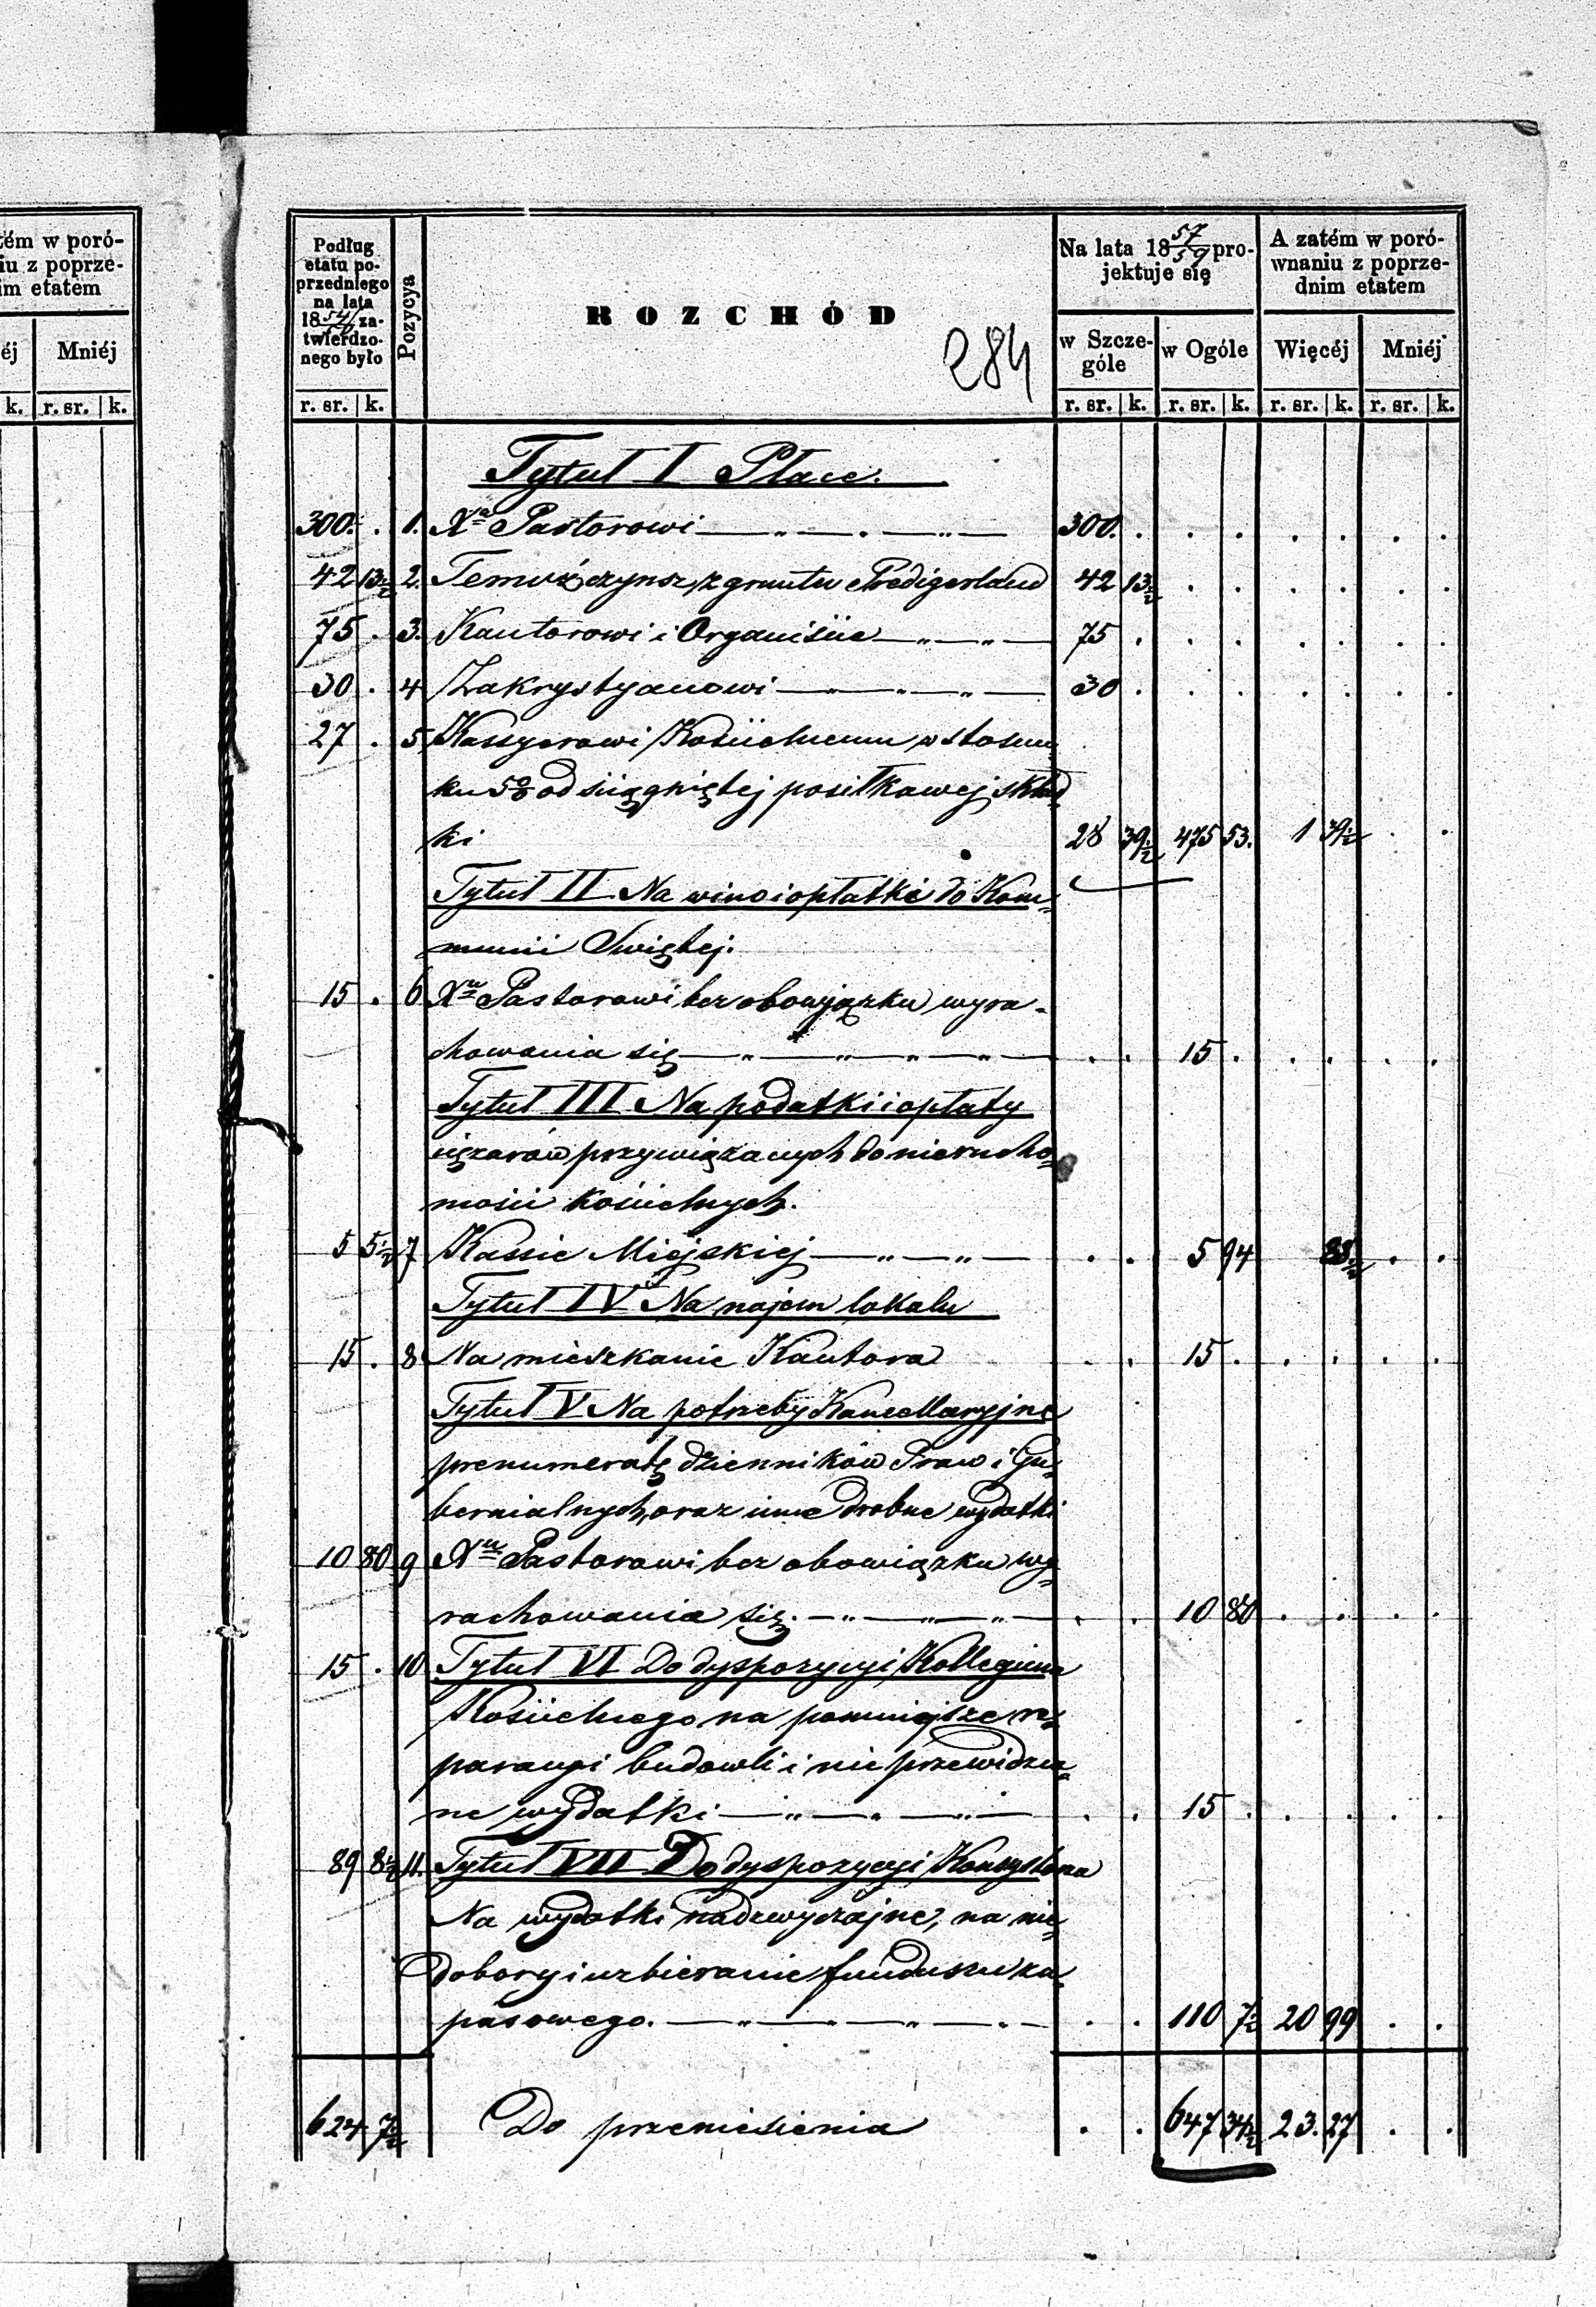 tém w poró-
iu z poprze-
im etatem
éj Mniéj
k. r. sr. k.
Podług etatu poprzedniego na lata 18 54/56 zatwierdzonego było
Pozycya
ROZCHÓD
284
Na lata 18 57/59 pro-
jektuje się
A zatém w poró-
wnaniu z poprze-
dnim etatem
w Szcze-
góle
w Ogóle
Więcéj
Mniéj
r. sr. k. r. sr. k. r. sr. k. r. sr. k. r. sr. k.
Tytuł I Płace.
300. . 1. Xu Pastorowi 300. .
42 13½ 2. Temuż czynsz z gruntu Predigerland 42 13½
75 . 3. Kantorowi i Organiście 75 .
30 . 4 Zakrystyanowi 30 .
27 . 5 Kassyerowi Kościelnemu w stosun
ku 5% od ściągniętej posiłkowej skład
ki 28 39½ 475 53. 1 39½
Tytuł II Na wino i opłatki do Kom-
munii Swiętej.
15 . 6 Xu Pastorowi bez obowiązku wyra-
chowania się 15 .
Tytuł III Na podatki i opłaty
ciężarów przywiązanych do nierucho-
mości kościelnych.
5 5½ 7 Kassie Miejskiej 5 94 88½
Tytuł IV Na najem lokalu
15 . 8 Na mieszkanie Kantora 15 .
Tytuł V Na potrzeby Kancellaryjne
prenumeratę dzienników Praw i Gu-
bernialnych, oraz inne drobne wydatki
10 80 9 Xu Pastorowi bez obowiązku wy-
rachowania się. 10 80
15 . 10 Tytuł VI Do dyspozycyi Kollegium
Kościelnego na pomniejsze re-
paracyi budowli i nie przewidzia-
ne wydatki 15 .
89 8½ 11. Tytuł VII Do dyspozycyi Konsystorza
Na wydatki nadzwyczajne, na nie-
dobory i uzbieranie funduszu za-
pasowego. 110 7½ 20 99
624 7½ Do przeniesienia 647 34½ 23. 27